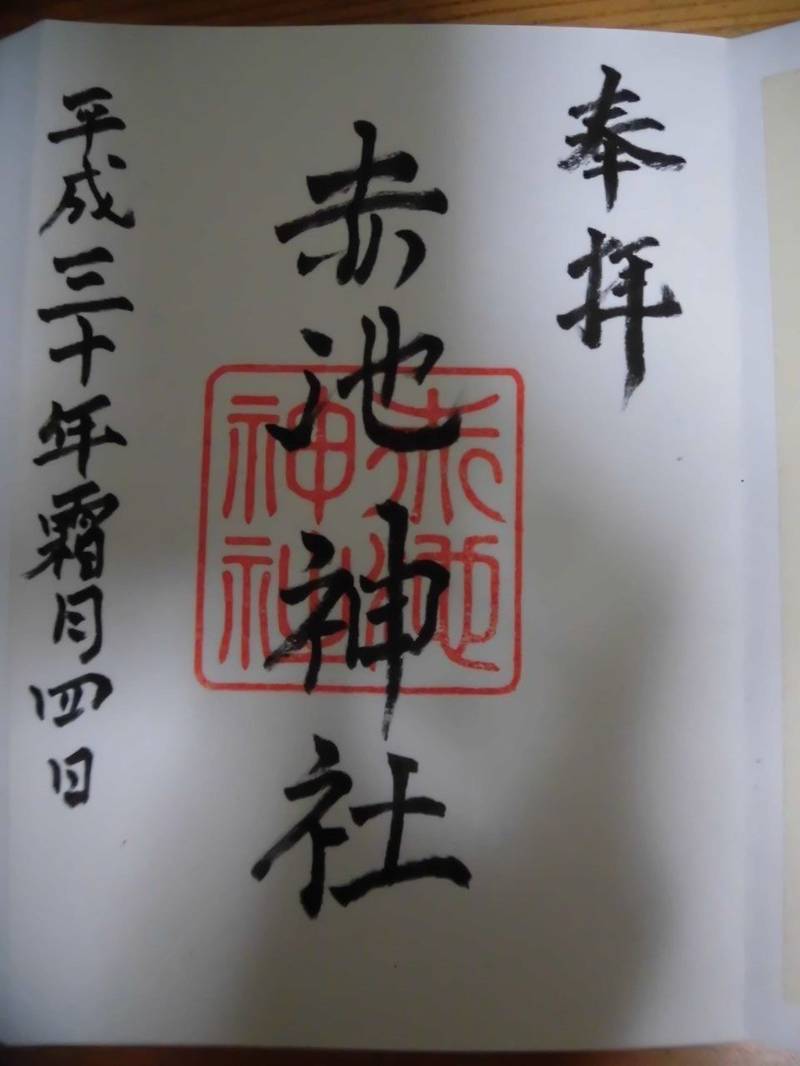 奉拝
赤池神社
赤池
神社
平成三十年霜月四日